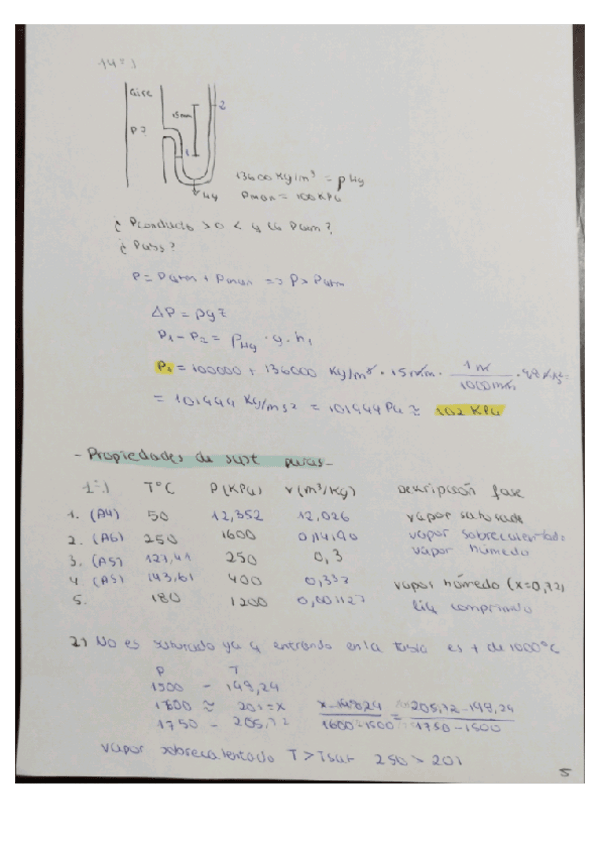 14=)
aire
15mm
2
P?
1
Hg
13600 Kg/m³ = ρHg
Pman = 100 KPa
¿ Pconducto > o < q la Patm?
¿ Pabs?
P = Patm + Pman => P > Patm
ΔP = ρgz
P₁ - P₂ = ρHg · g · h₁
P₁ = 100000 + 136000 Kg/m³ · 15mm · 1m / 1000mm
= 101999 Kg/ms² = 101999 Pa ≈ 102 KPa
- Propiedades de sust puras -
1=) T°C P(KPa) v(m³/Kg) Descripción fase
1. (A4) 50 12,352 12,026 vapor saturado
2. (A6) 250 1600 0,14190 vapor sobrecalentado
3. (A5) 127,41 250 0,3 vapor húmedo
4. (A5) 143,61 400 0,337 vapor húmedo (x=0,72)
5. 180 1200 0,001127 líq comprimido
2) No es saturado ya q entrando en la tabla es + de 1000°C
P T
1500 - 149,24
1600 ≈ 201=x x-149,24 / 1600-1500 = 205,72-149,24 / 1750-1500
1750 - 205,72
vapor sobrecalentado T>Tsat 250>201
5